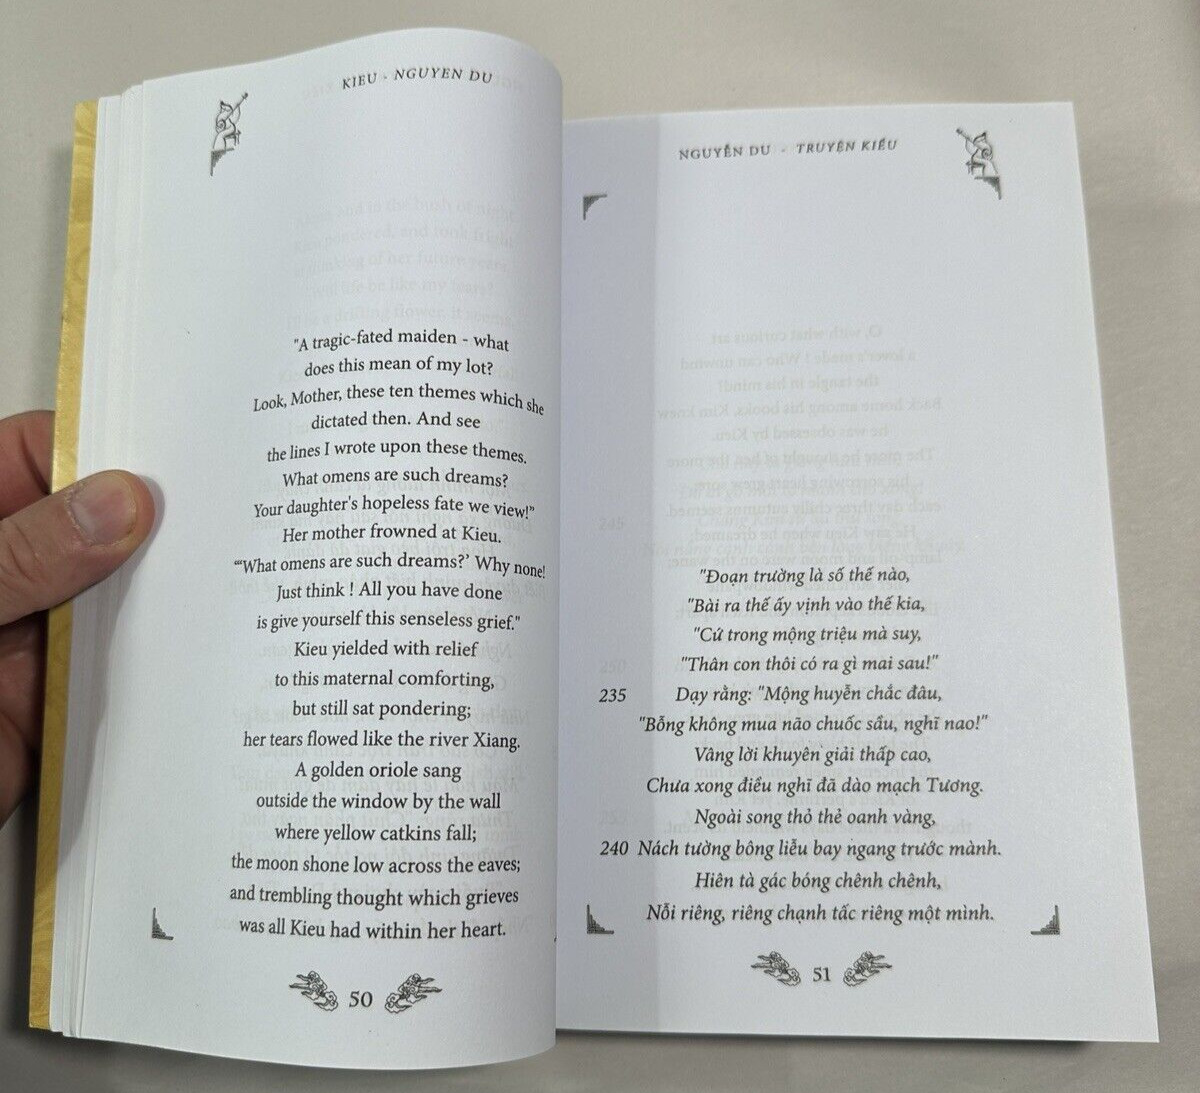 KIEU - NGUYEN DU
"A tragic-fated maiden - what
does this mean of my lot?
Look, Mother, these ten themes which she
dictated then. And see
the lines I wrote upon these themes.
What omens are such dreams?
Your daughter's hopeless fate we view!”
Her mother frowned at Kieu.
“‘What omens are such dreams?’ Why none!
Just think ! All you have done
is give yourself this senseless grief."
Kieu yielded with relief
to this maternal comforting,
but still sat pondering;
her tears flowed like the river Xiang.
A golden oriole sang
outside the window by the wall
where yellow catkins fall;
the moon shone low across the eaves;
and trembling thought which grieves
was all Kieu had within her heart.
50
NGUYỄN DU - TRUYỆN KIỀU
"Đoạn trường là số thế nào,
"Bài ra thế ấy vịnh vào thế kia,
"Cứ trong mộng triệu mà suy,
"Thân con thôi có ra gì mai sau!"
235 Dạy rằng: "Mộng huyễn chắc đâu,
"Bỗng không mua não chuốc sầu, nghĩ nao!"
Vâng lời khuyên giải thấp cao,
Chưa xong điều nghĩ đã dào mạch Tương.
Ngoài song thỏ thẻ oanh vàng,
240 Nách tường bông liễu bay ngang trước mành.
Hiên tà gác bóng chênh chênh,
Nỗi riêng, riêng chạnh tấc riêng một mình.
51